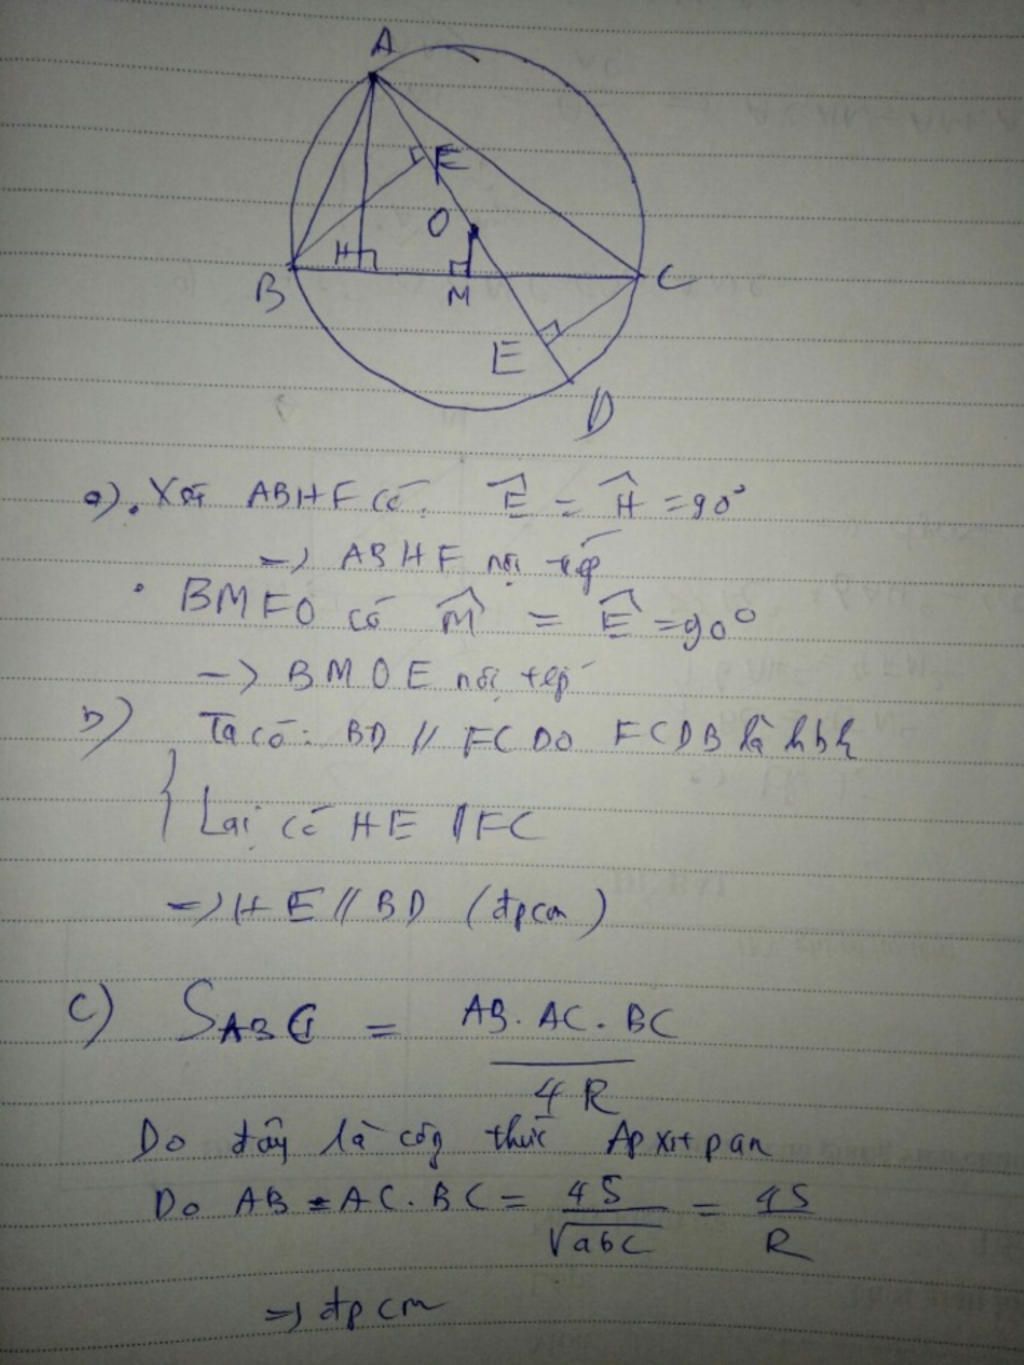 A
F
O
H
B
M
C
E
D
a). Xét ABHF có: Ê = Ĥ = 90°
=> ABHF nội tiếp
• BMFO có M̂ = Ê = 90°
-> BMOE nội tiếp
b) Ta có: BD // FC Do FCDB là hbh
Lại có HE // FC
=> HE // BD (đpcm)
c) S ABC = AB. AC. BC
4 R
Do đây là công thức
Do AB = AC. BC = 4S / √abc = 4S / R
=> đpcm